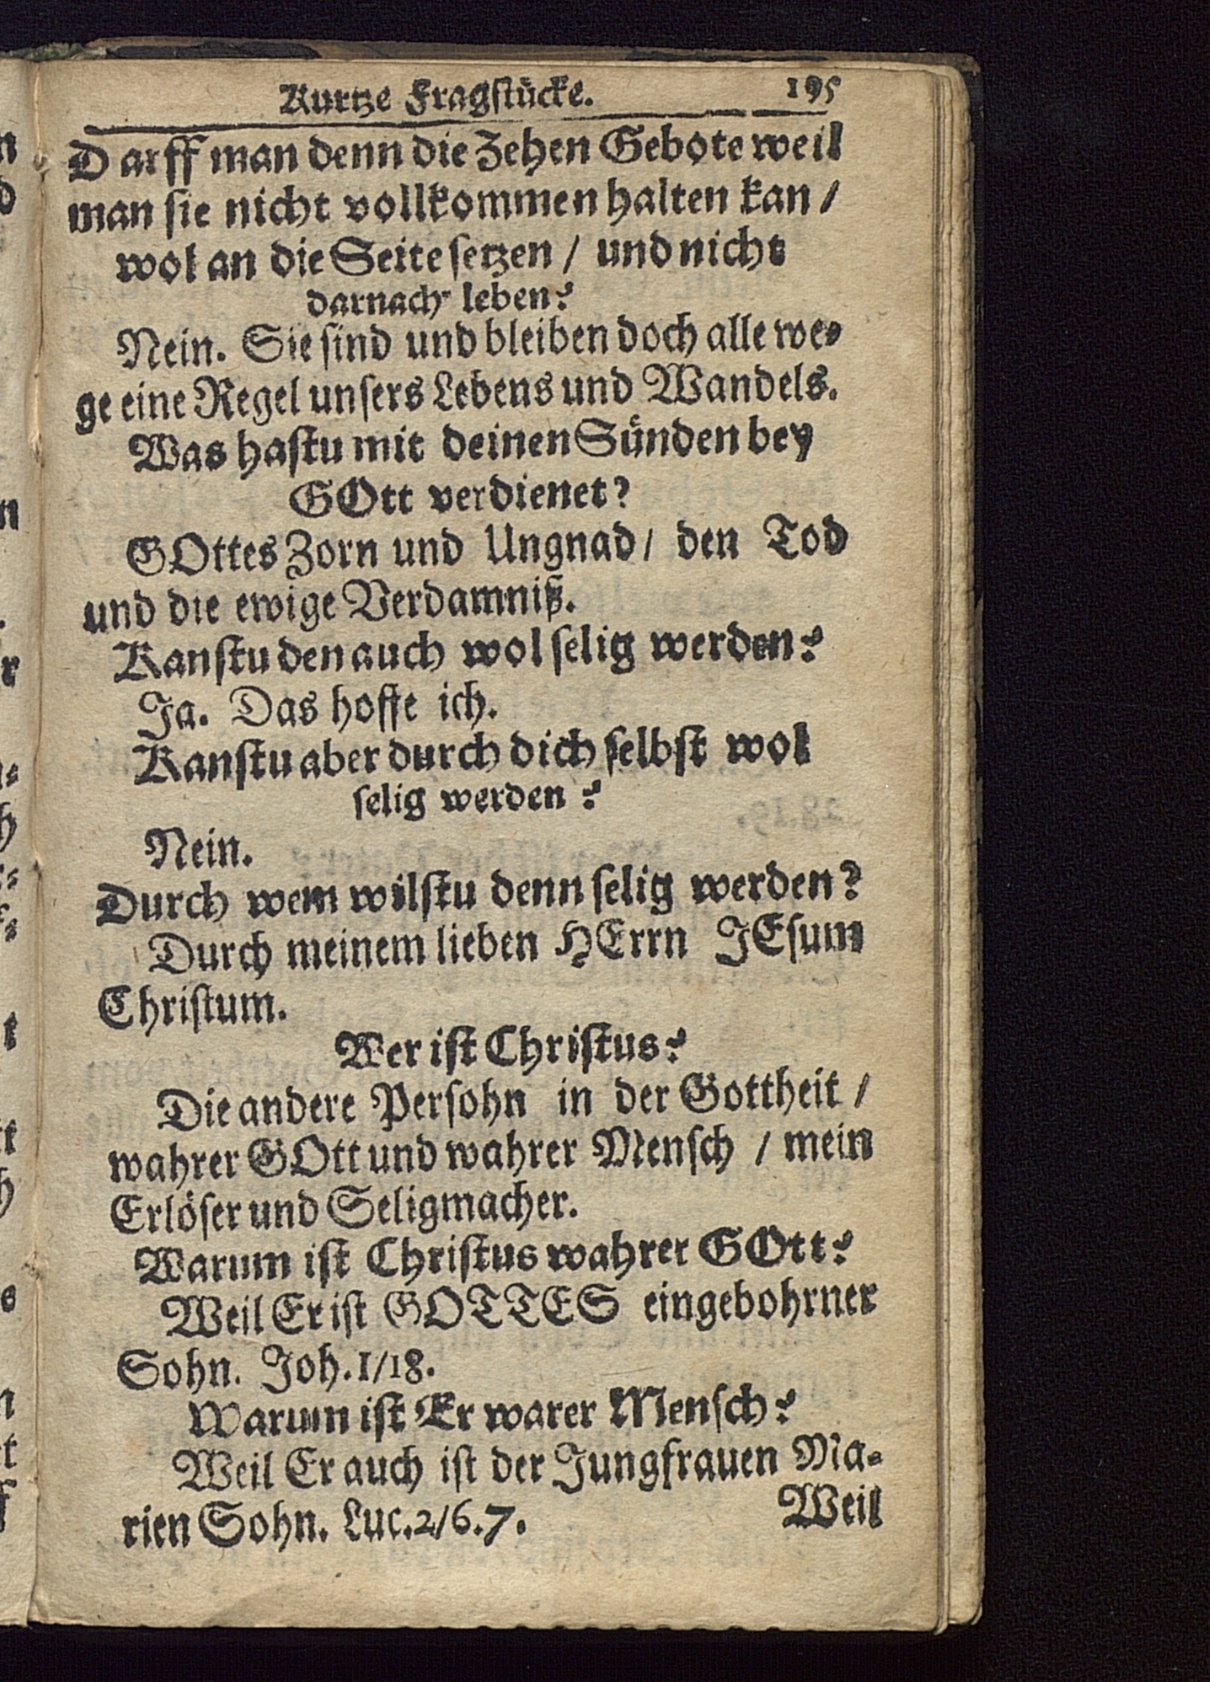 Kurtze Fragstücke. 195
Darff man denn die Zehen Gebote weil
man sie nicht vollkommen halten kan /
wol an die Seite setzen / und nicht
darnach leben?
Nein. Sie sind und bleiben doch alle we-
ge eine Regel unsers Lebens und Wandels.
Was hastu mit deinen Sünden bey
GOtt verdienet?
GOttes Zorn und Ungnad / den Tod
und die ewige Verdamniß.
Kanstu den auch wol selig werden?
Ja. Das hoffe ich.
Kanstu aber durch dich selbst wol
selig werden?
Nein.
Durch wem wilstu denn selig werden?
Durch meinem lieben HErrn JEsum
Christum.
Wer ist Christus?
Die andere Persohn in der Gottheit /
wahrer GOtt und wahrer Mensch / mein
Erlöser und Seligmacher.
Warum ist Christus wahrer GOtt?
Weil Er ist GOTTES eingebohrner
Sohn. Joh. 1/18.
Warum ist Er warer Mensch?
Weil Er auch ist der Jungfrauen Ma-
rien Sohn. Luc. 2/6. 7. Weil